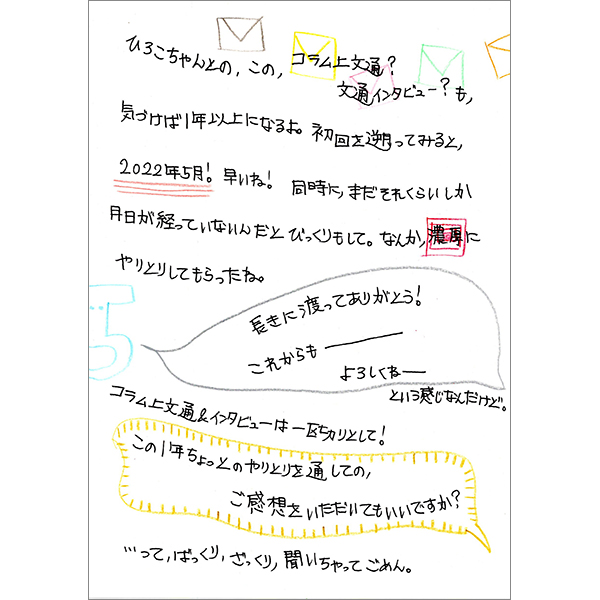 ひろこちゃんとの、この、コラム上文通?
文通インタビュー?も、
気づけば1年以上になるよ。初回を遡ってみると、
2022年5月!早いね! 同時に、まだそれくらいしか
月日が経っていないんだとびっくりもして。なんか、濃厚に
やりとりしてもらったね。
長きに渡ってありがとう!
これからも―――
よろしくね―
という感じなんだけど。
コラム上文通&インタビューは一区切りとして!
この1年ちょっとのやりとりを通しての、
ご感想をいただいてもいいですか?
…って、ばっくり、ざっくり、聞いちゃってごめん。